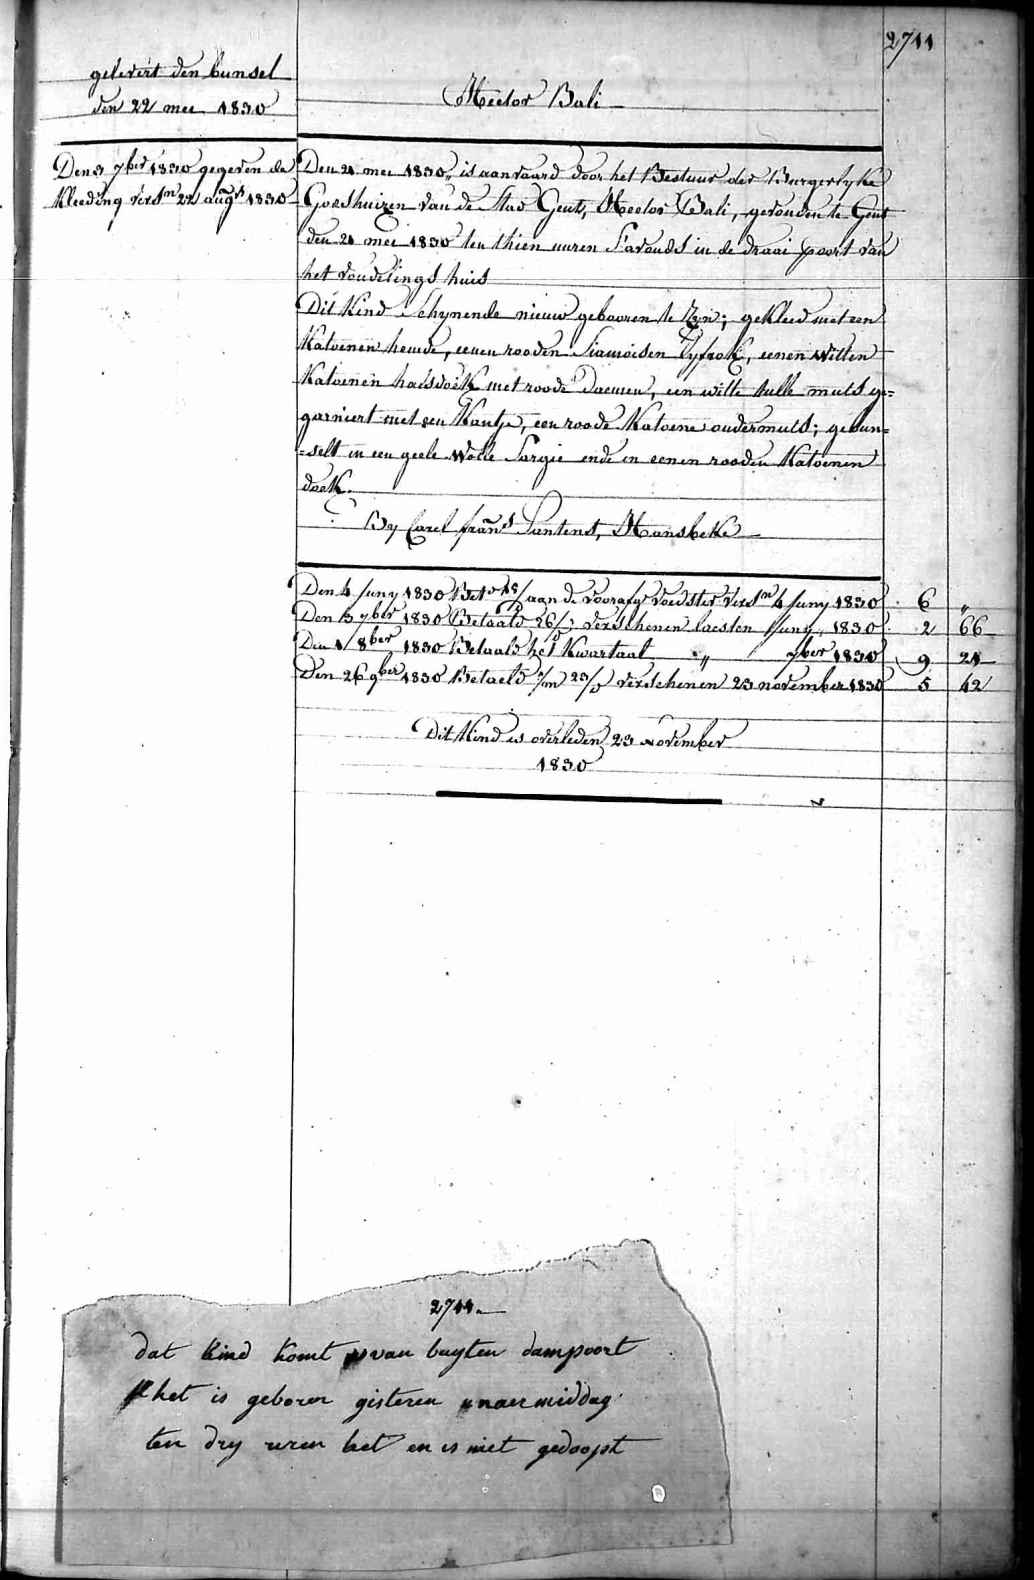 2711
gelevert den bunsel
den 22 mei 1830
Hector Bali
Den 3 7ber 1830 gegeven de
kleeding versn 22 augt 1830
Den 21 mei 1830, is aanvaard door het Bestuur der Burgerlyke
Godshuizen van de Stad Gent, Hector Bali, gevonden te Gent
den 21 mei 1830 ten thien uuren s'avonds in de draai poort van
het vondelings huis
Dit kind schynende nieuw gebooren te zyn; gekleed met een
katoenen hemde, eenen rooden Siamoisen lyfrok, eenen witten
katoenen halsdoek met roode, een witte tulle muts ge=
garniert met een kantje, een roode katoene ondermuts; gebun=
=selt in een geele wolle Sargie ende in eenen rooden katoenen
doek.
By Carel frans Suntens, Hansbeke
Den 4 Juny 1830 aan de voorafg voedster versn 4 Juny 1830 6 "
Den 3 7ber 1830 Betaald 26/ verschenen laesten Juny, 1830 2 66
Den 1 8ber 1830 Betaald het kwartaal " 7ber 1830 9 21
Den 26 9ber 1830 Betaeld 1/m 23/ verschenen 23 november 1830 5 42
Dit kind is overleden 23 november
1830
2711.
dat kind komt van buyten dampoort
het is geboren gisteren naermiddag
ten dry uren het en is niet gedoopt